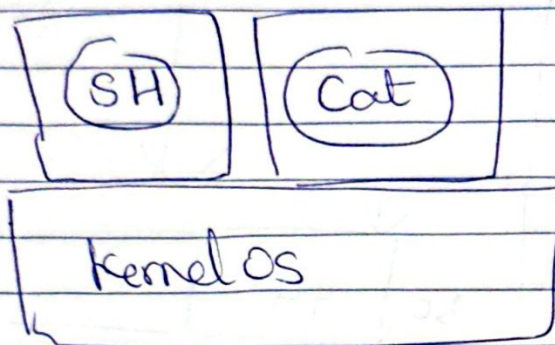 SH
Cat
Kernel OS